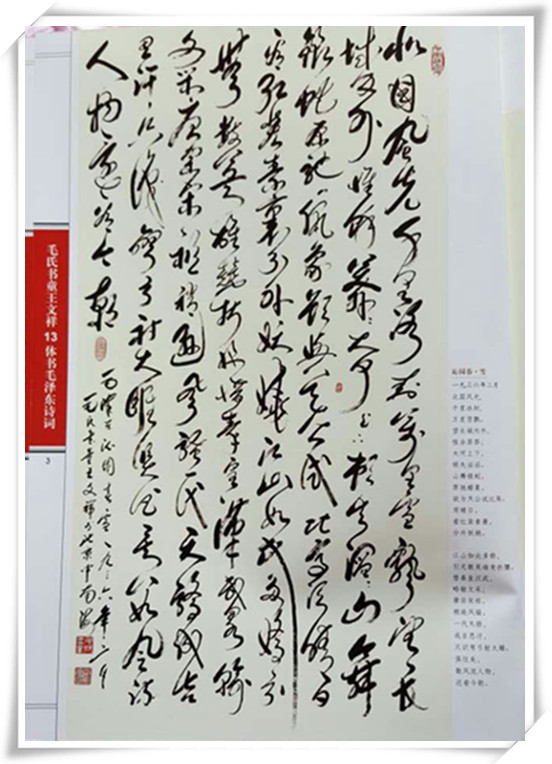 北国风光千里冰封万里雪飘望长
城内外惟余莽莽大河上下顿失滔滔山舞
银蛇原驰蜡象欲与天公试比高须晴日
看红装素裹分外妖娆江山如此多娇引
无数英雄竞折腰惜秦皇汉武略输
文采唐宗宋祖稍逊风骚一代天骄成吉
思汗只识弯弓射大雕俱往矣数风流
人物还看今朝
毛泽东沁园春雪一九三六年二月
毛氏书童王文祥书于北京中南海
沁园春·雪
一九三六年二月
北国风光,
千里冰封,
万里雪飘。
望长城内外,
惟余莽莽;
大河上下,
顿失滔滔。
山舞银蛇,
原驰蜡象,
欲与天公试比高。
须晴日,
看红装素裹,
分外妖娆。
江山如此多娇,
引无数英雄竞折腰。
惜秦皇汉武,
略输文采;
唐宗宋祖,
稍逊风骚。
一代天骄,
成吉思汗,
只识弯弓射大雕。
俱往矣,
数风流人物,
还看今朝。
毛氏书童王文祥13体书毛泽东诗词
3